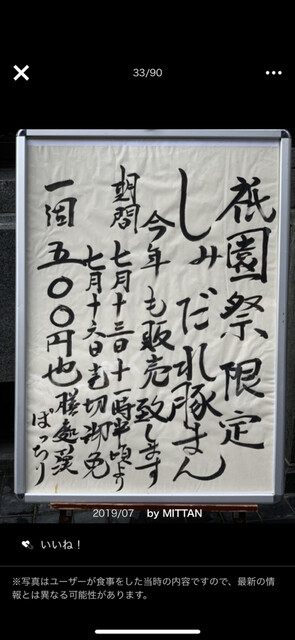 33/90
祇園祭限定
しみだれ豚まん
今年も販売致します
期間 七月十三日十一時半頃より
七月十六日売切御免
一個 五〇〇円也
膳處漢
ぽっちり
2019/07 by MITTAN
いいね！
※写真はユーザーが食事をした当時の内容ですので、最新の情
報とは異なる可能性があります。